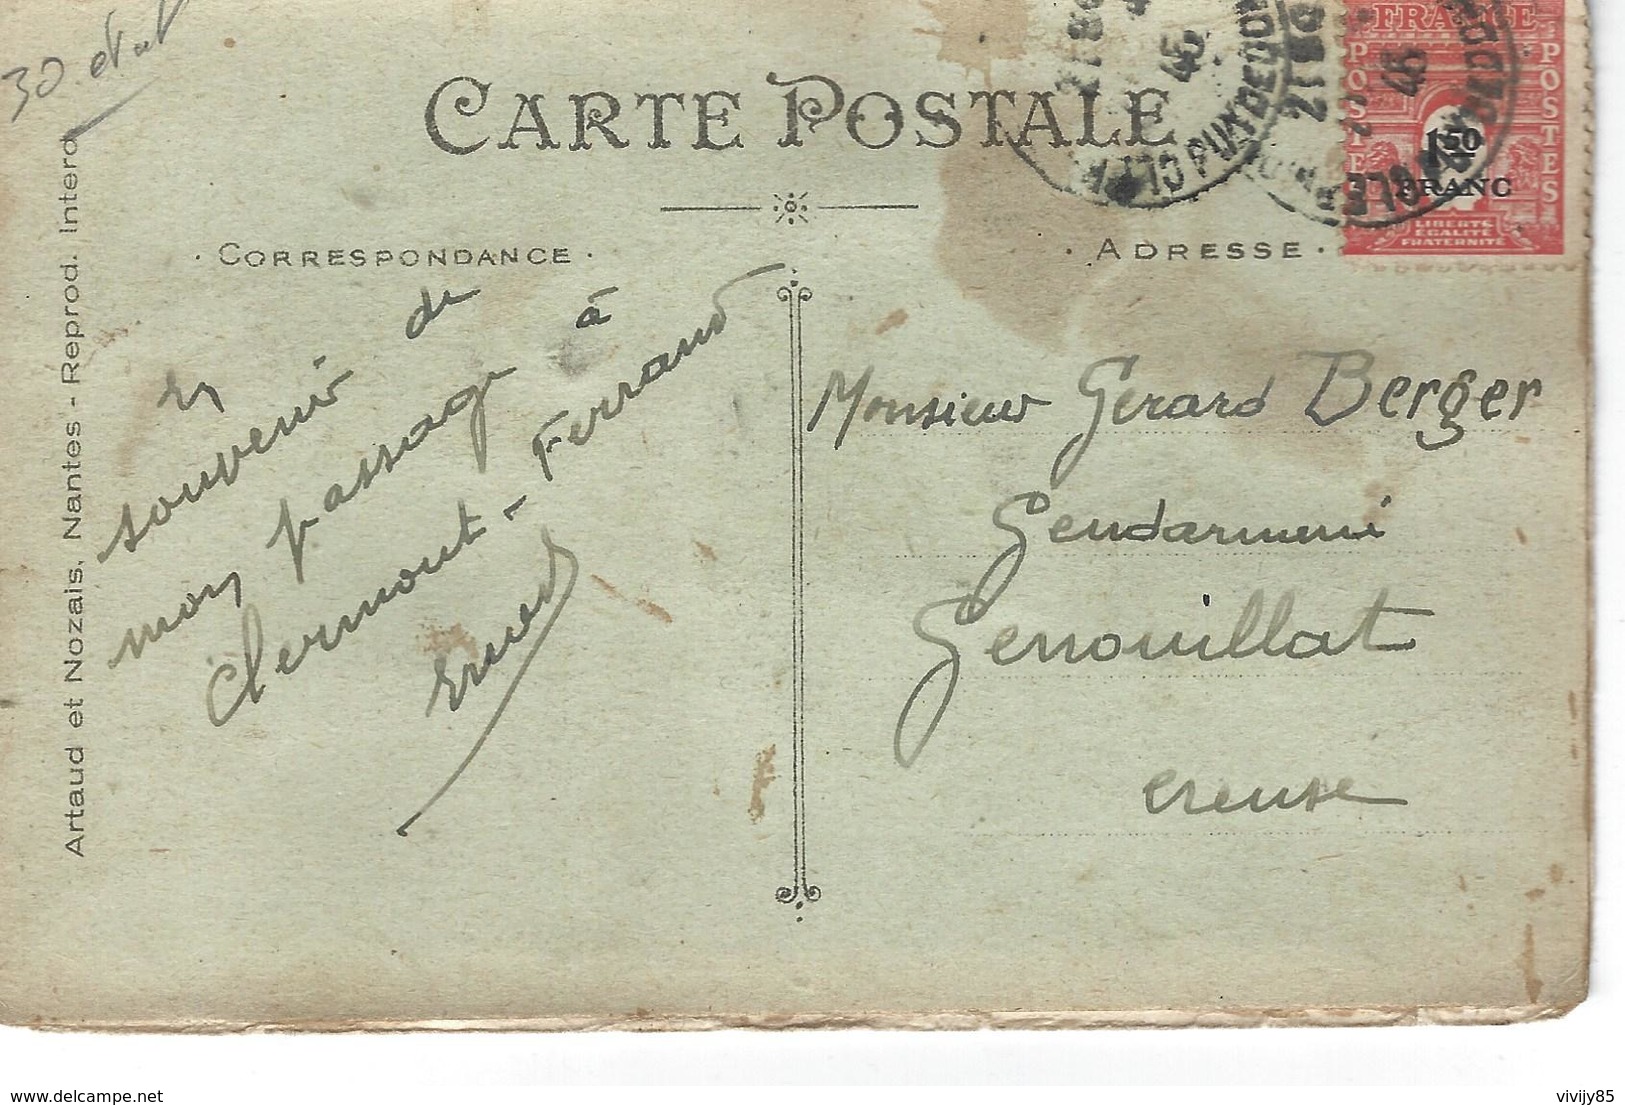 30
CARTE POSTALE
· CORRESPONDANCE ·
· ADRESSE ·
FRANCE
POSTES
POSTES
1,50
FRANC
LIBERTÉ
ÉGALITÉ
FRATERNITÉ
45
45
PUY DE DOME
Artaud et Nozais, Nantes - Reprod. Interd.
en
souvenir de
mon passage à
Clermont-Ferrand
Monsieur Gérard Berger
Gendarmerie
Genouillat
Creuse
delcampe.net
vivijy85